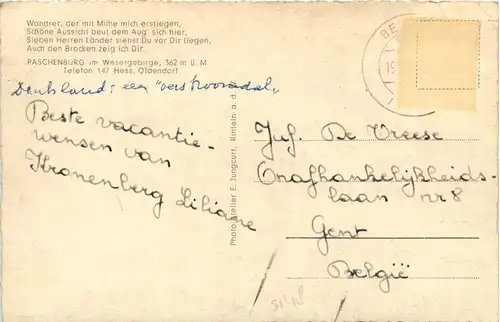 Wandrer, der mit Mühe mich erstiegen,
Schöne Aussicht beut dem Aug' sich hier,
Sieben Herren Länder siehst Du vor Dir liegen,
Auch den Brocken zeig ich Dir.
PASCHENBURG im Wesergebirge, 362 m Ü. M
Telefon 147 Hess. Oldendorf
Duitsland: een
Beste vacantie-
wensen van
Kronenberg Liliane
Photo-Atelier E. Jungcurt, Rinteln a. d.
BE
19
Juf. De Vreese
Onafhankelijkheids-
laan nr 8
Gent
België